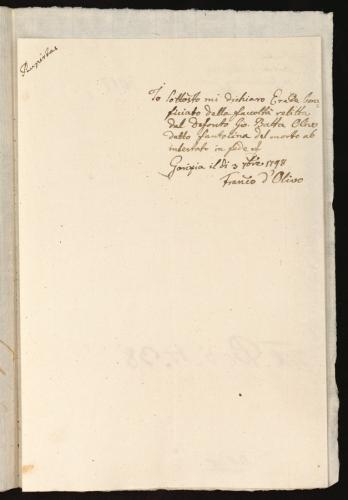 Io Sottosto mi dichiaro Erede ben-
ficiato della facoltà relitta
dal defonto Gio. Batta Olivo
detto Santolina del morto ab
intestato in fede
Gorizia il dì 3 1798
Franco d'Olivo